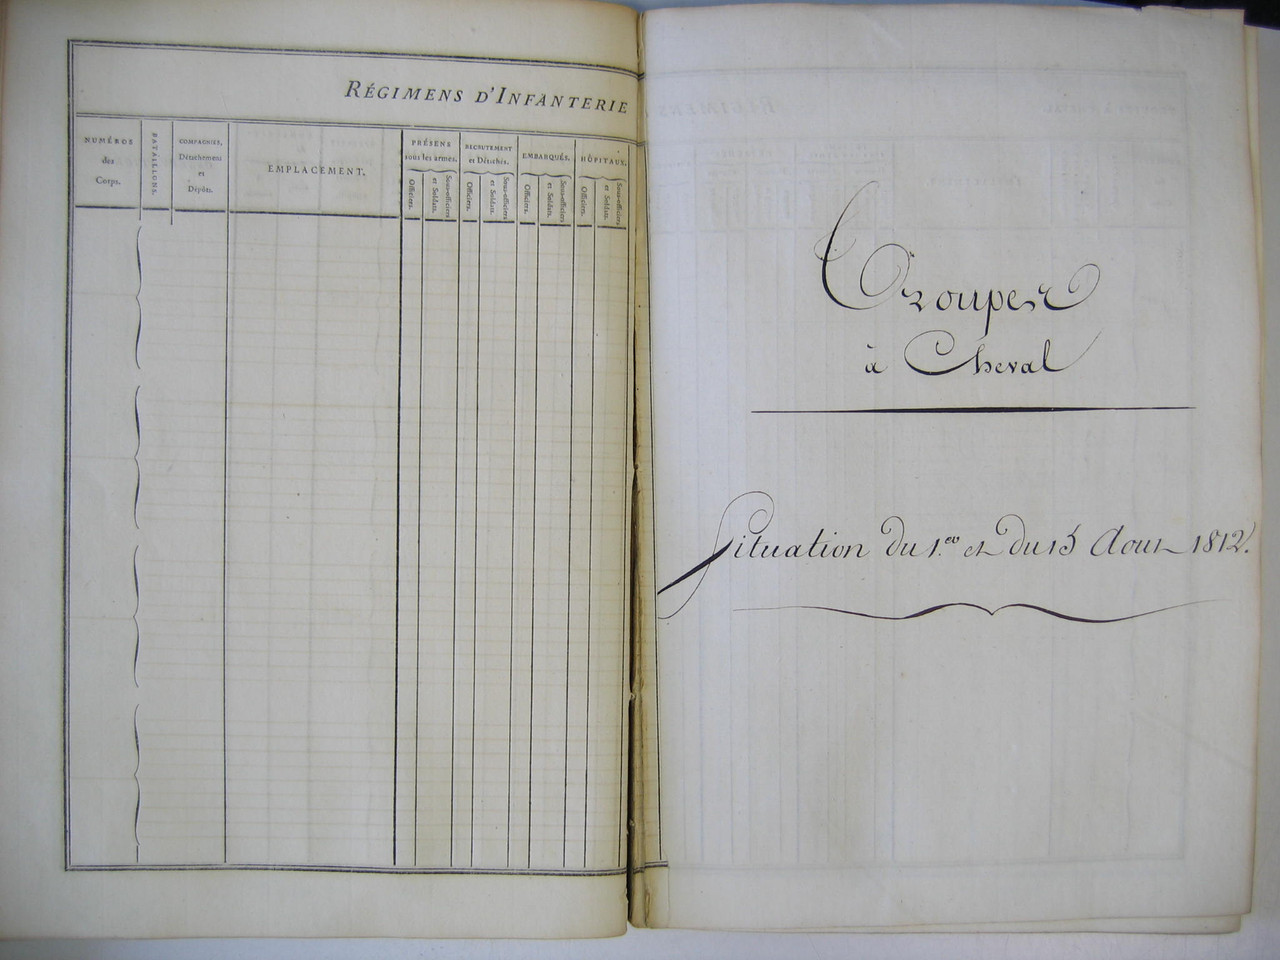 RÉGIMENS D'INFANTERIE
NUMÉROS
des
Corps.
BATAILLONS.
COMPAGNIES,
Détachemens
et
Dépôts.
EMPLACEMENT.
PRÉSENS
sous les armes.
Officiers.
Sous-officiers
et Soldats.
RECRUTEMENT
et Détachés.
Officiers.
Sous-officiers
et Soldats.
EMBARQUÉS.
Officiers.
Sous-officiers
et Soldats.
HÔPITAUX.
Officiers.
Sous-officiers
et Soldats.
Troupes
à Cheval
Situation du 1.er et du 15 Aout 1812.